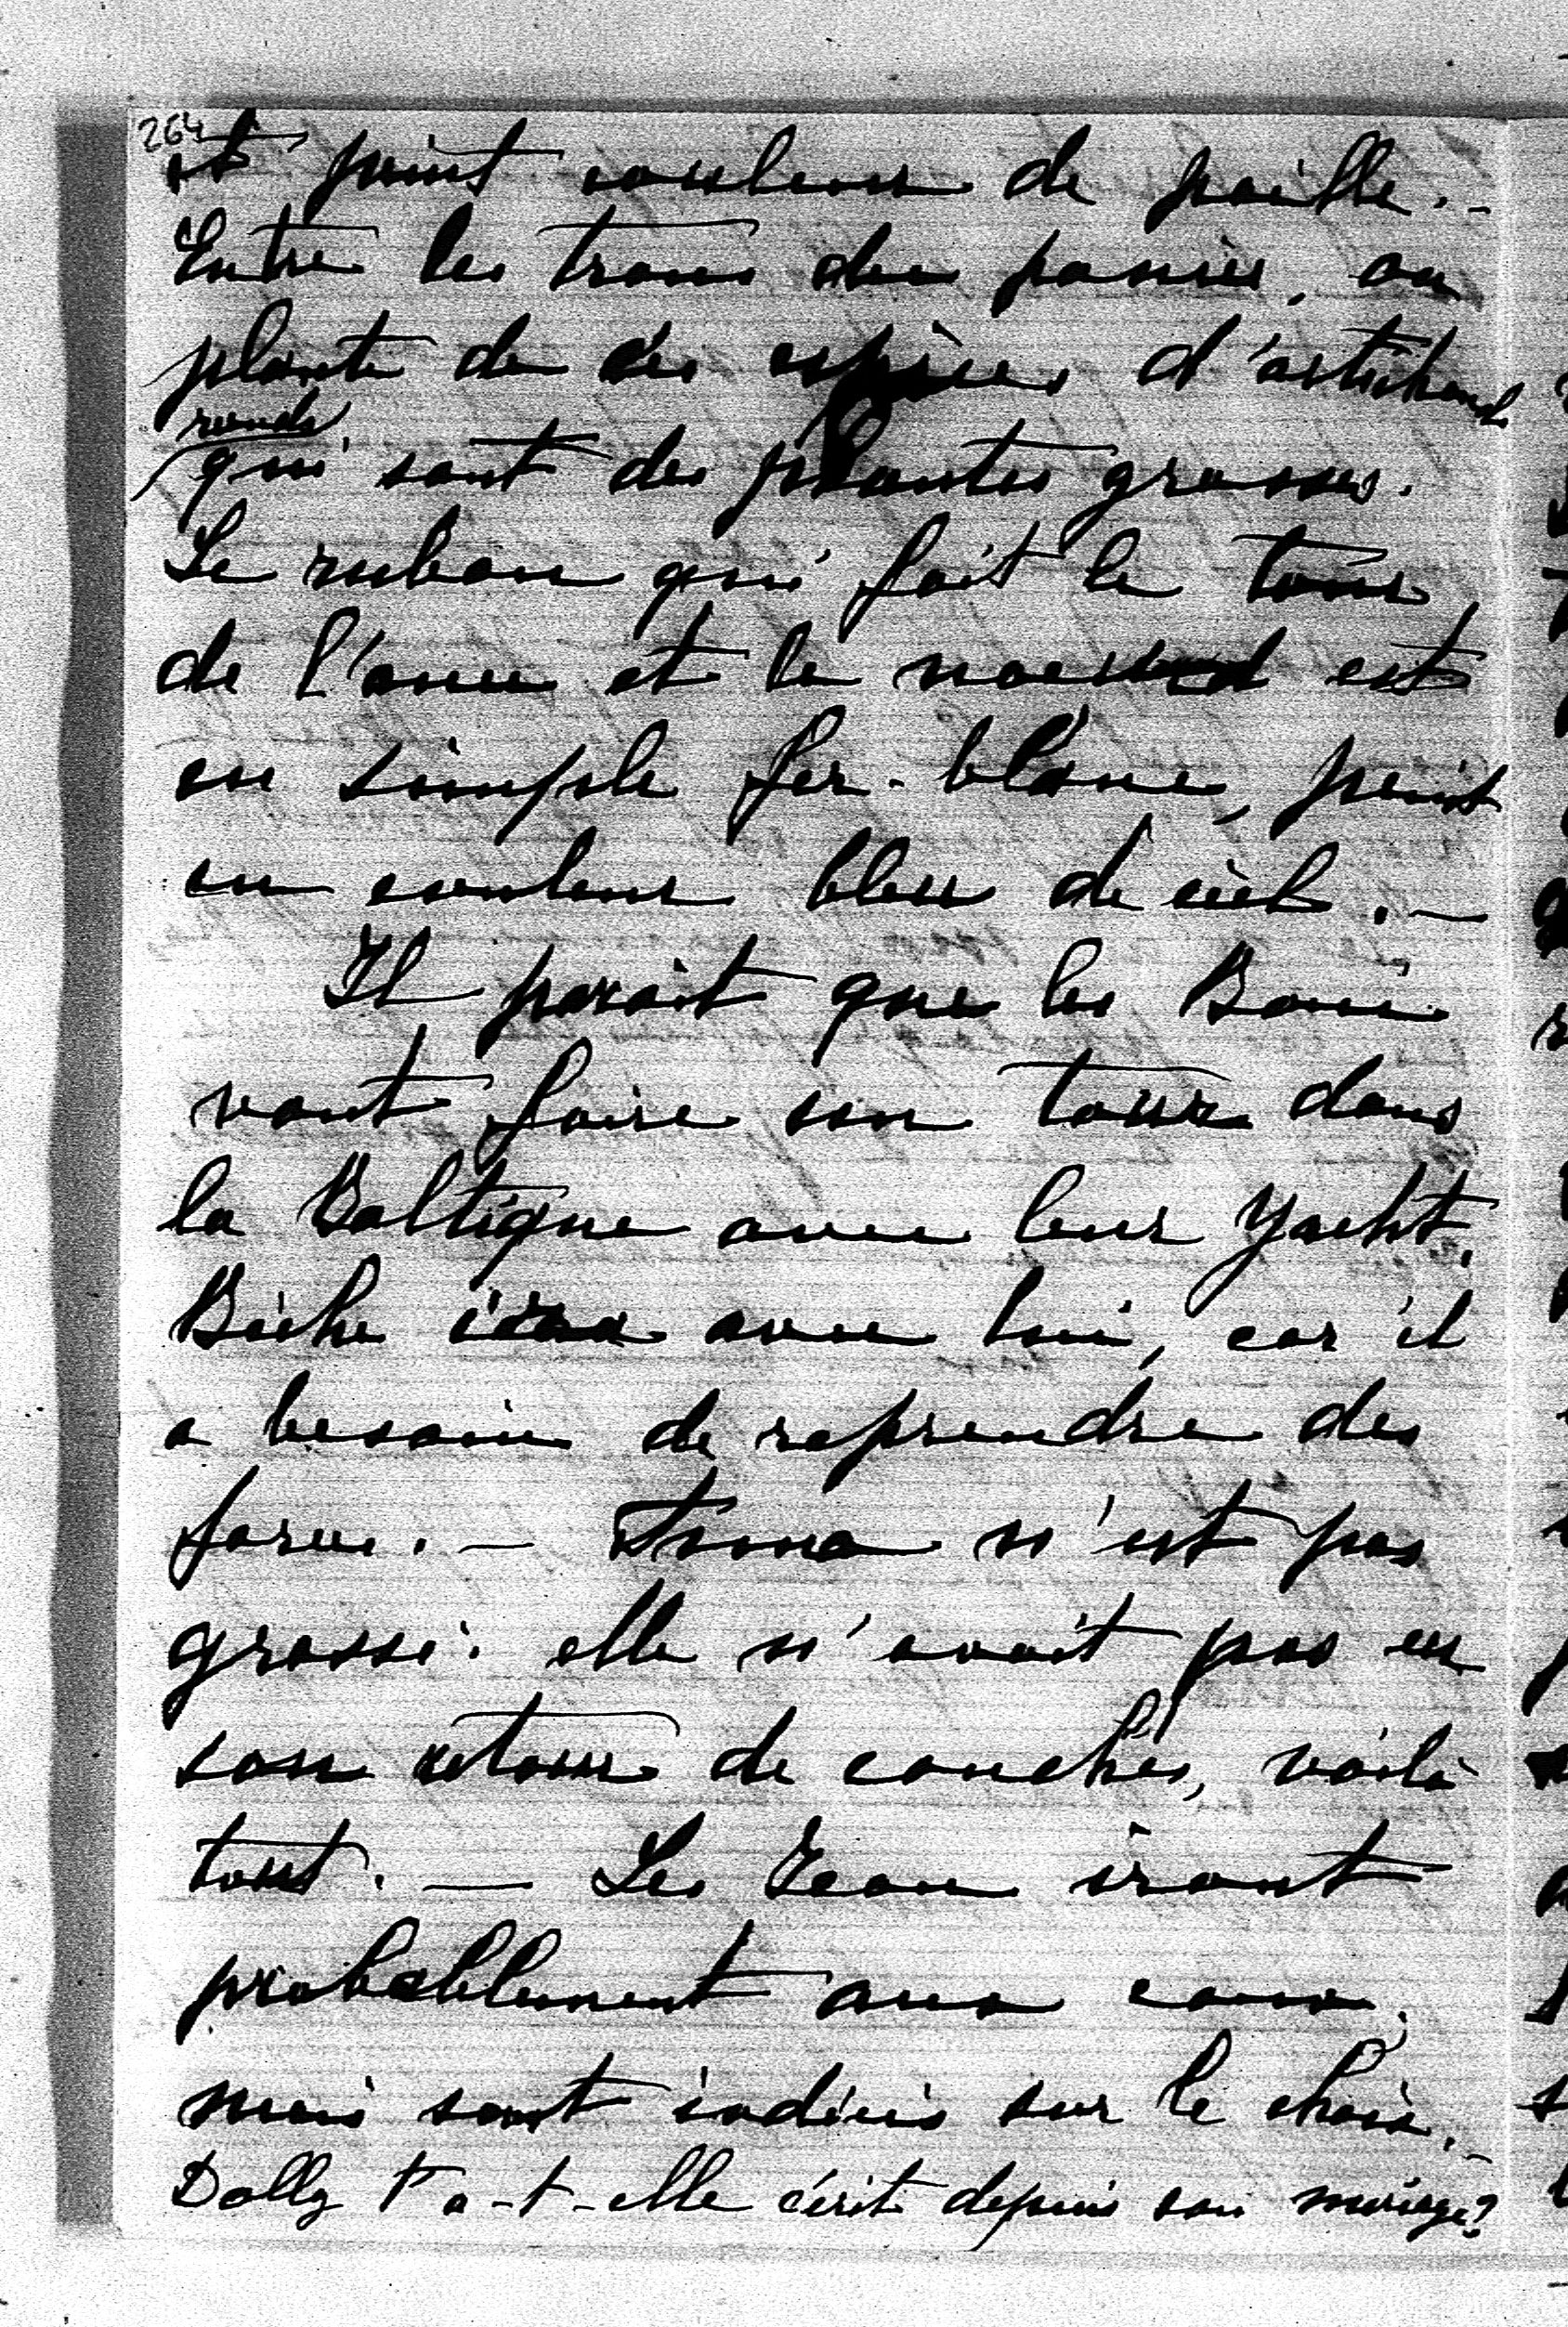 264
et peint couleur de paille. -
Entre les trous du panier, on
plante de ces espèces d'artichauds
ronds
qui sont des plantes grasses.
Le ruban qui fait le tour
de l'anse et le noeud est
en simple fer-blanc, peint
en couleur bleu de ciel. -
Il parait que les Boni
vont faire un tour dans
la Baltique avec leur Yacht.
Biche ira avec lui, car il
a besoin de reprendre des
forces. - n'est pas
grosse. elle n'avait pas eu
son retour de couches, voilà
tout. - Les Jean iront
probablement aux eaux,
mais sont indécis sur le choix. -
Dolly t'a-t-elle écrit depuis son mariage?